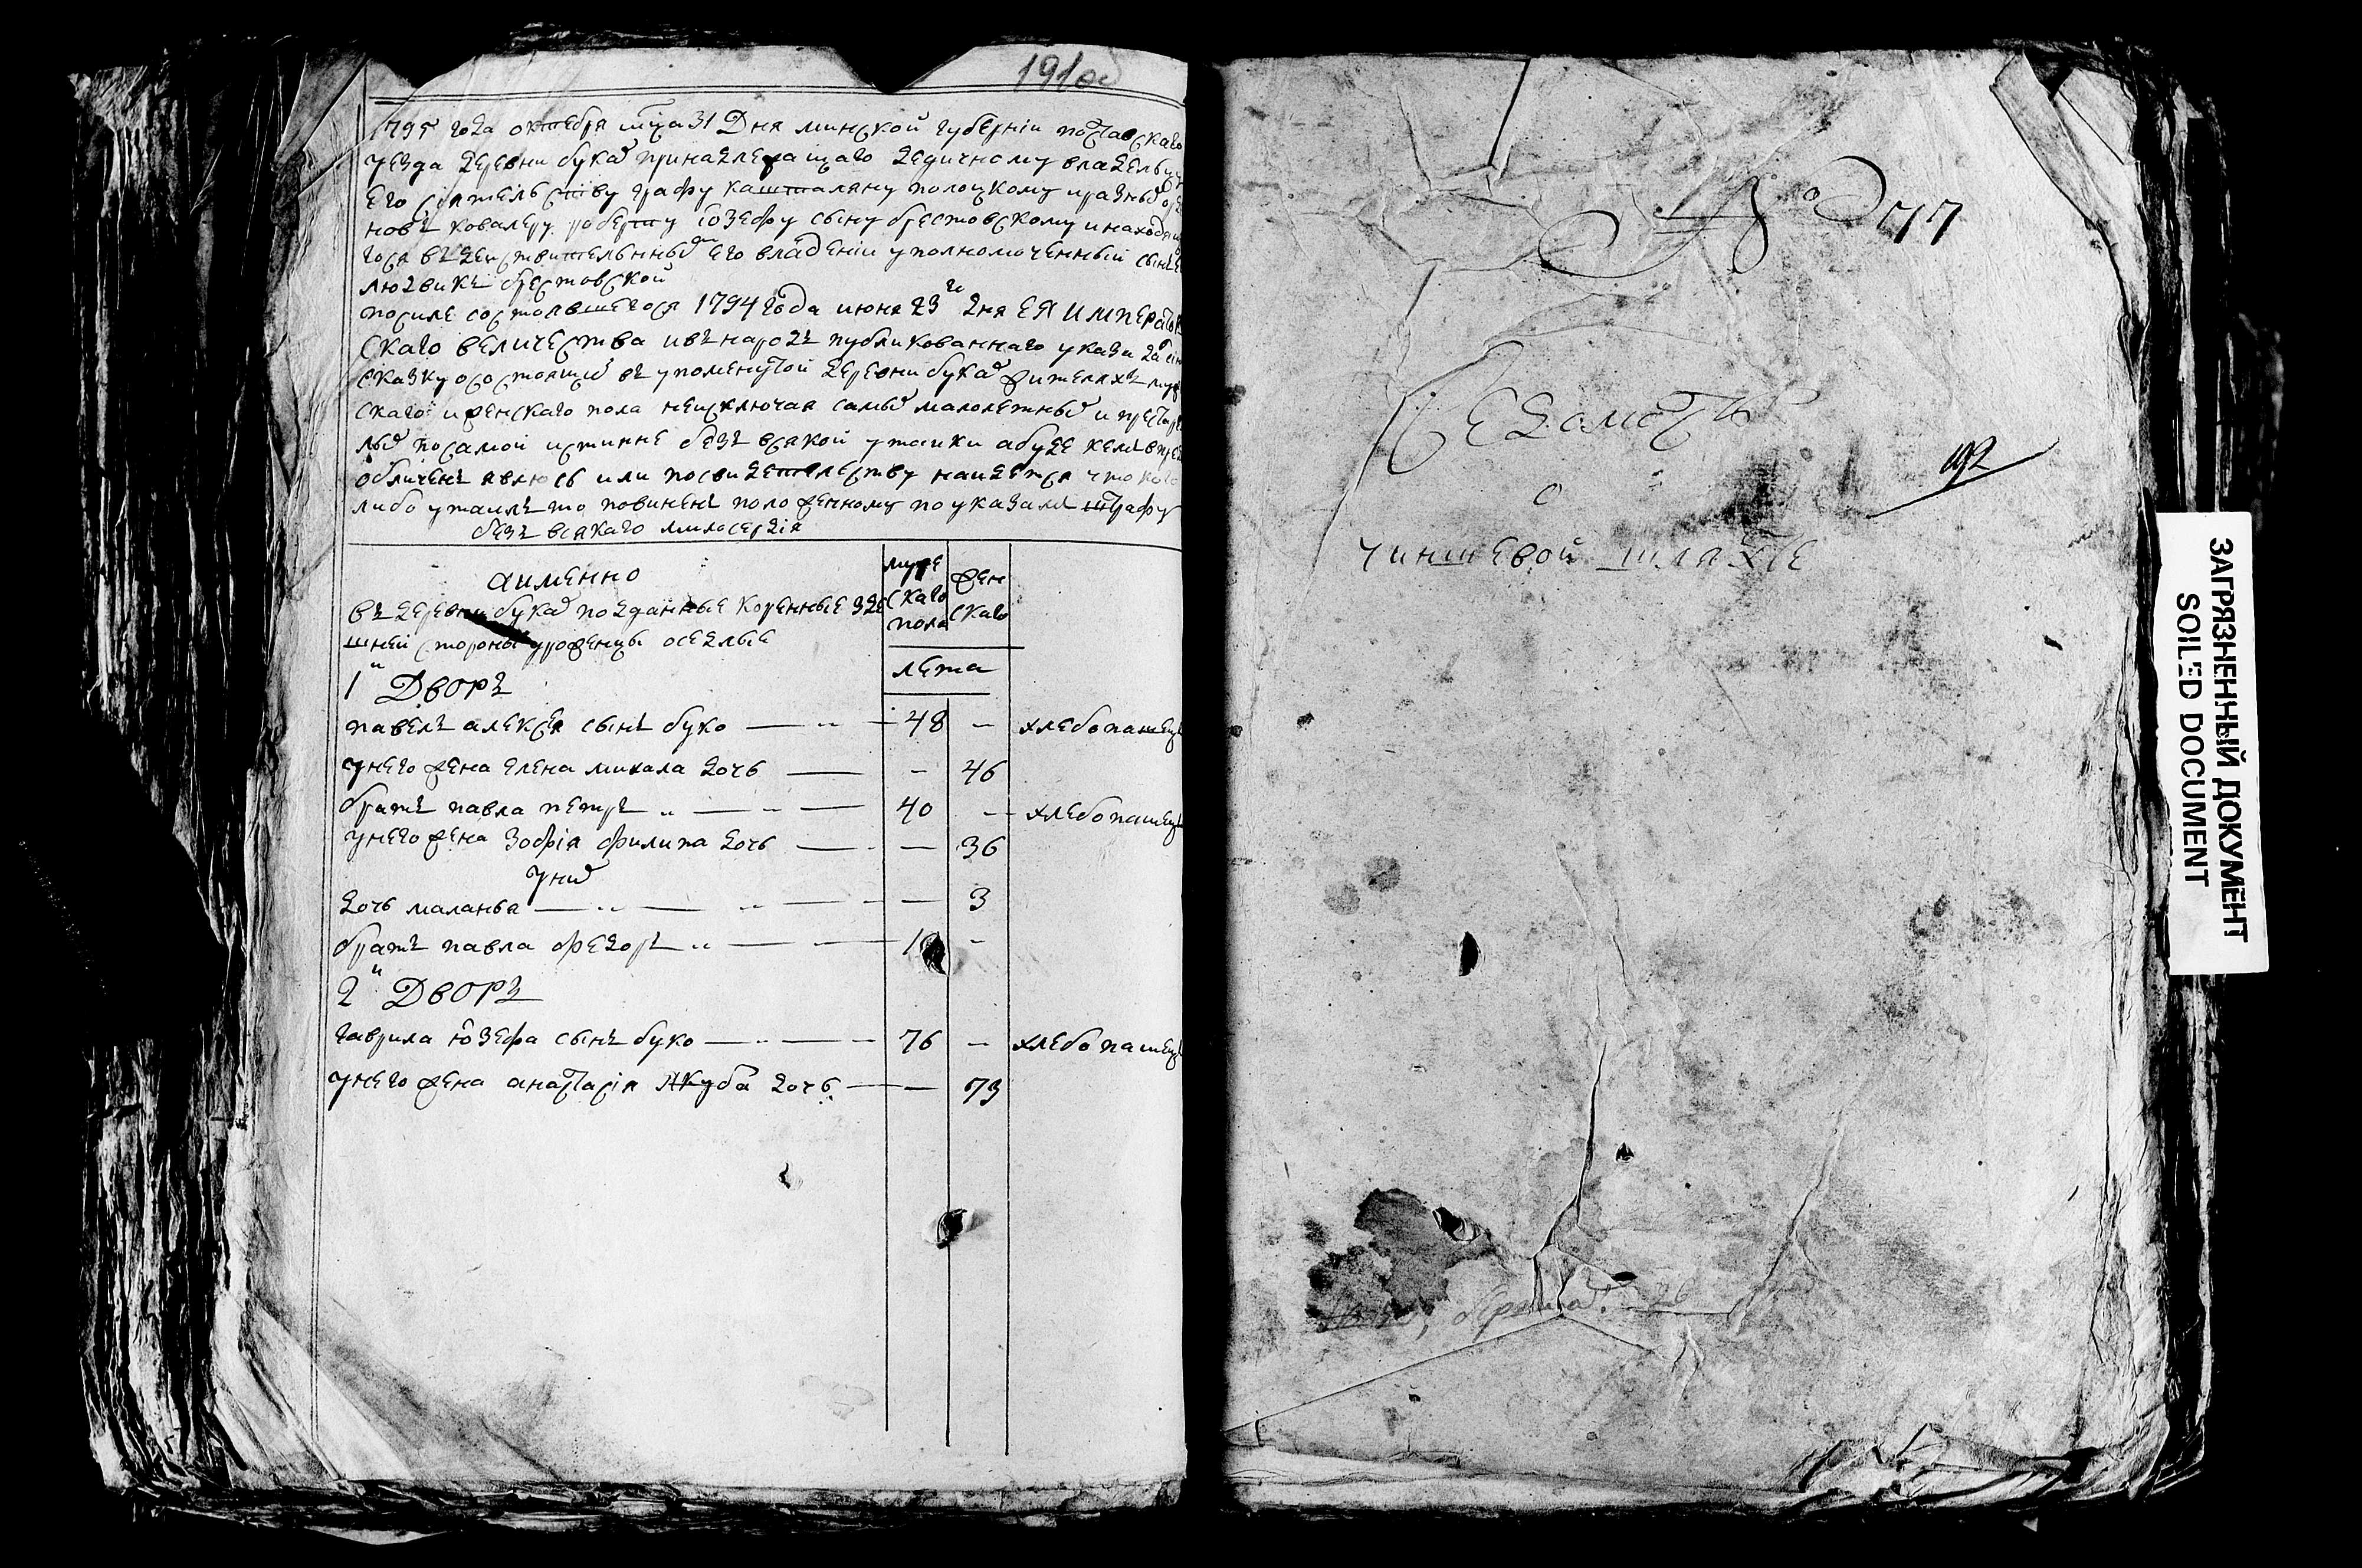 191об
1795 года октября мца 31 Дня минской губерніи поставскаго
уезда деревни буках принадлежащаго дедичному владельцу
Его сіятельству графу кашталяну полоцкому и разных орде
новъ ковалеру роберту іозефу сыну брестовскому и находяща
гося въ действительных его владеніи уполномоченный сынъ
людвикъ брестовской
по силе состоявшегося 1794 года июня 23го дня ЕЯ Император
скаго величества и въ народъ публикованнаго указа дал сію
сказку о состоящих въ упоменутой деревни буках жителяхъ муж
скаго и женскаго пола не исключая самых малолетных и престаре
лых по самой истинне безъ всякой утаики а буде кемъ в пред
обличенъ явлюсь или по свидетельству найдется что кого
либо утаилъ то повиненъ положенному по указамъ штрафу
безъ всякаго милосердія
а именно
муже
скаго
пола
жен
скаго
въ деревни буках подданные коренные зде
шней стороны уроженцы оседлые
лета
1й Дворъ
павелъ алексея сынъ буко 48 — хлебопашецъ
у него жена елена михала дочь — 46
братъ павла петръ 40 — хлебопашецъ
у него жена зофія филипа дочь — 36
у них
дочь маланья — 3
братъ павла федоръ —
2й Дворъ
гаврила іозефа сынъ буко 76 — хлебопашецъ
у него жена анастасія якуба дочь — 73
№ 77
Ведомость
о
192
чиншевой шляхте
26
ЗАГРЯЗНЕННЫЙ ДОКУМЕНТ
SOILED DOCUMENT